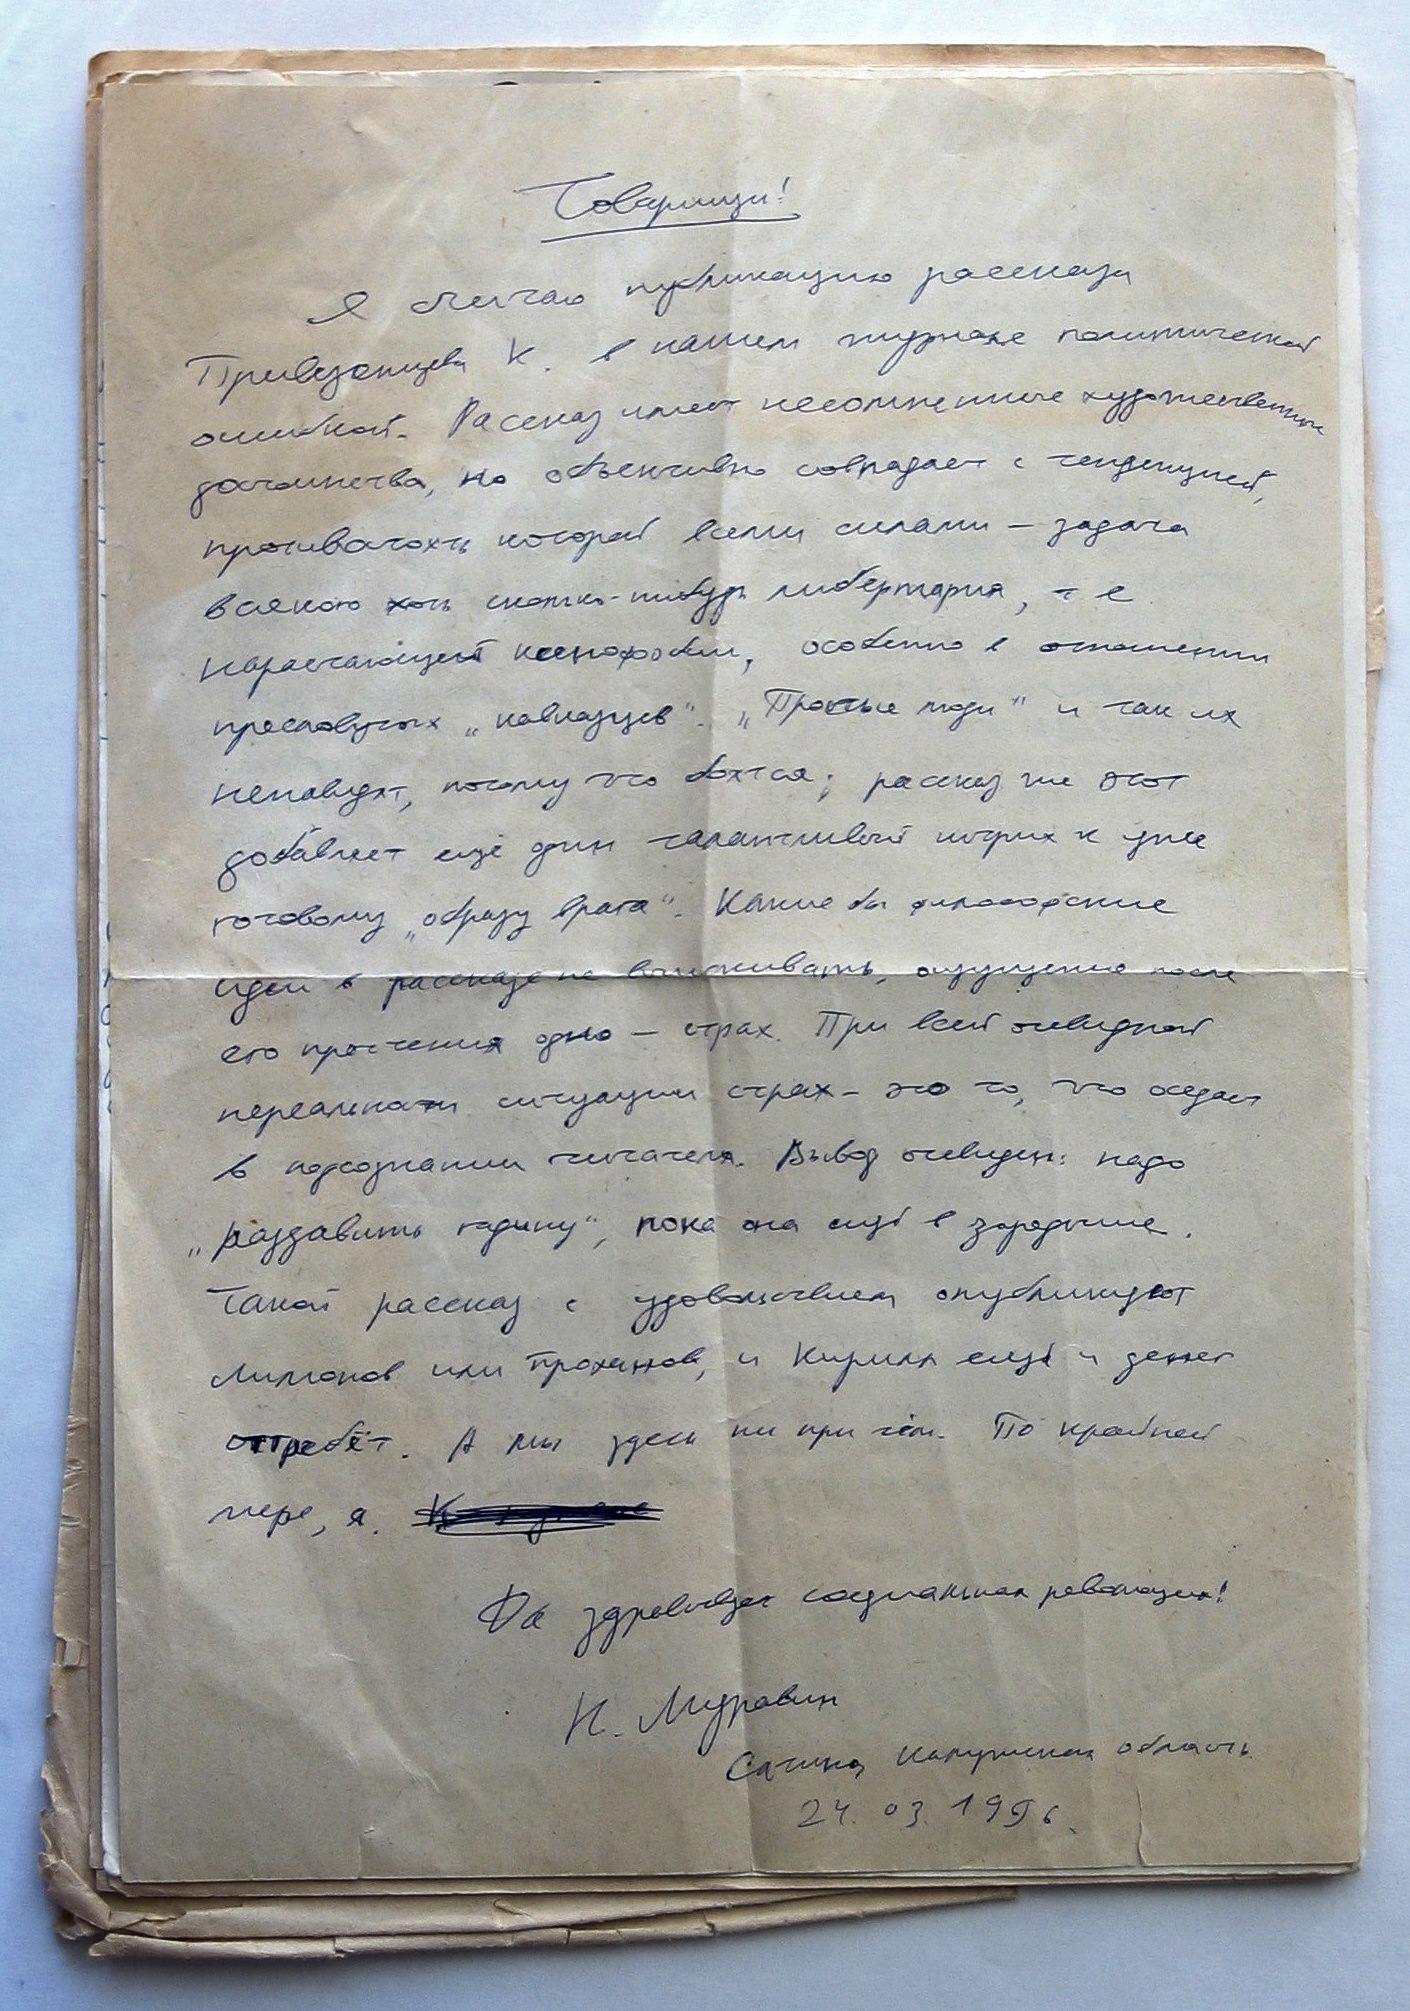 Товарищи!
Я считаю публикацию рассказа
Привезенцева К. в нашем журнале политической
ошибкой. Рассказ имеет несомненные художественные
достоинства, но объективно совпадает с тенденцией,
противостоять которой всеми силами – задача
всякого хоть сколько-нибудь либертария, т е
нарастающей ксенофобии, особенно в отношении
пресловутых „кавказцев“. „Простые люди“ и так их
ненавидят, потому что боятся; рассказ же этот
добавляет ещё один талантливый штрих к уже
готовому „образу врага“. Какие бы философские
идеи в рассказе не выискивать, ощущение после
его прочтения одно – страх. При всей очевидной
нереальности ситуации страх – это то, что оседает
в подсознании читателя. Вывод очевиден: надо
„раздавить гадину“, пока она ещё в зародыше.
Такой рассказ с удовольствием опубликуют
Лимонов или Проханов, и Кирилл ещё и денег
отгребёт. А мы здесь ни при чём. По крайней
мере, я.
Да здравствует социальная революция!
Н. Муравин
Калужская область
24.03.1996.